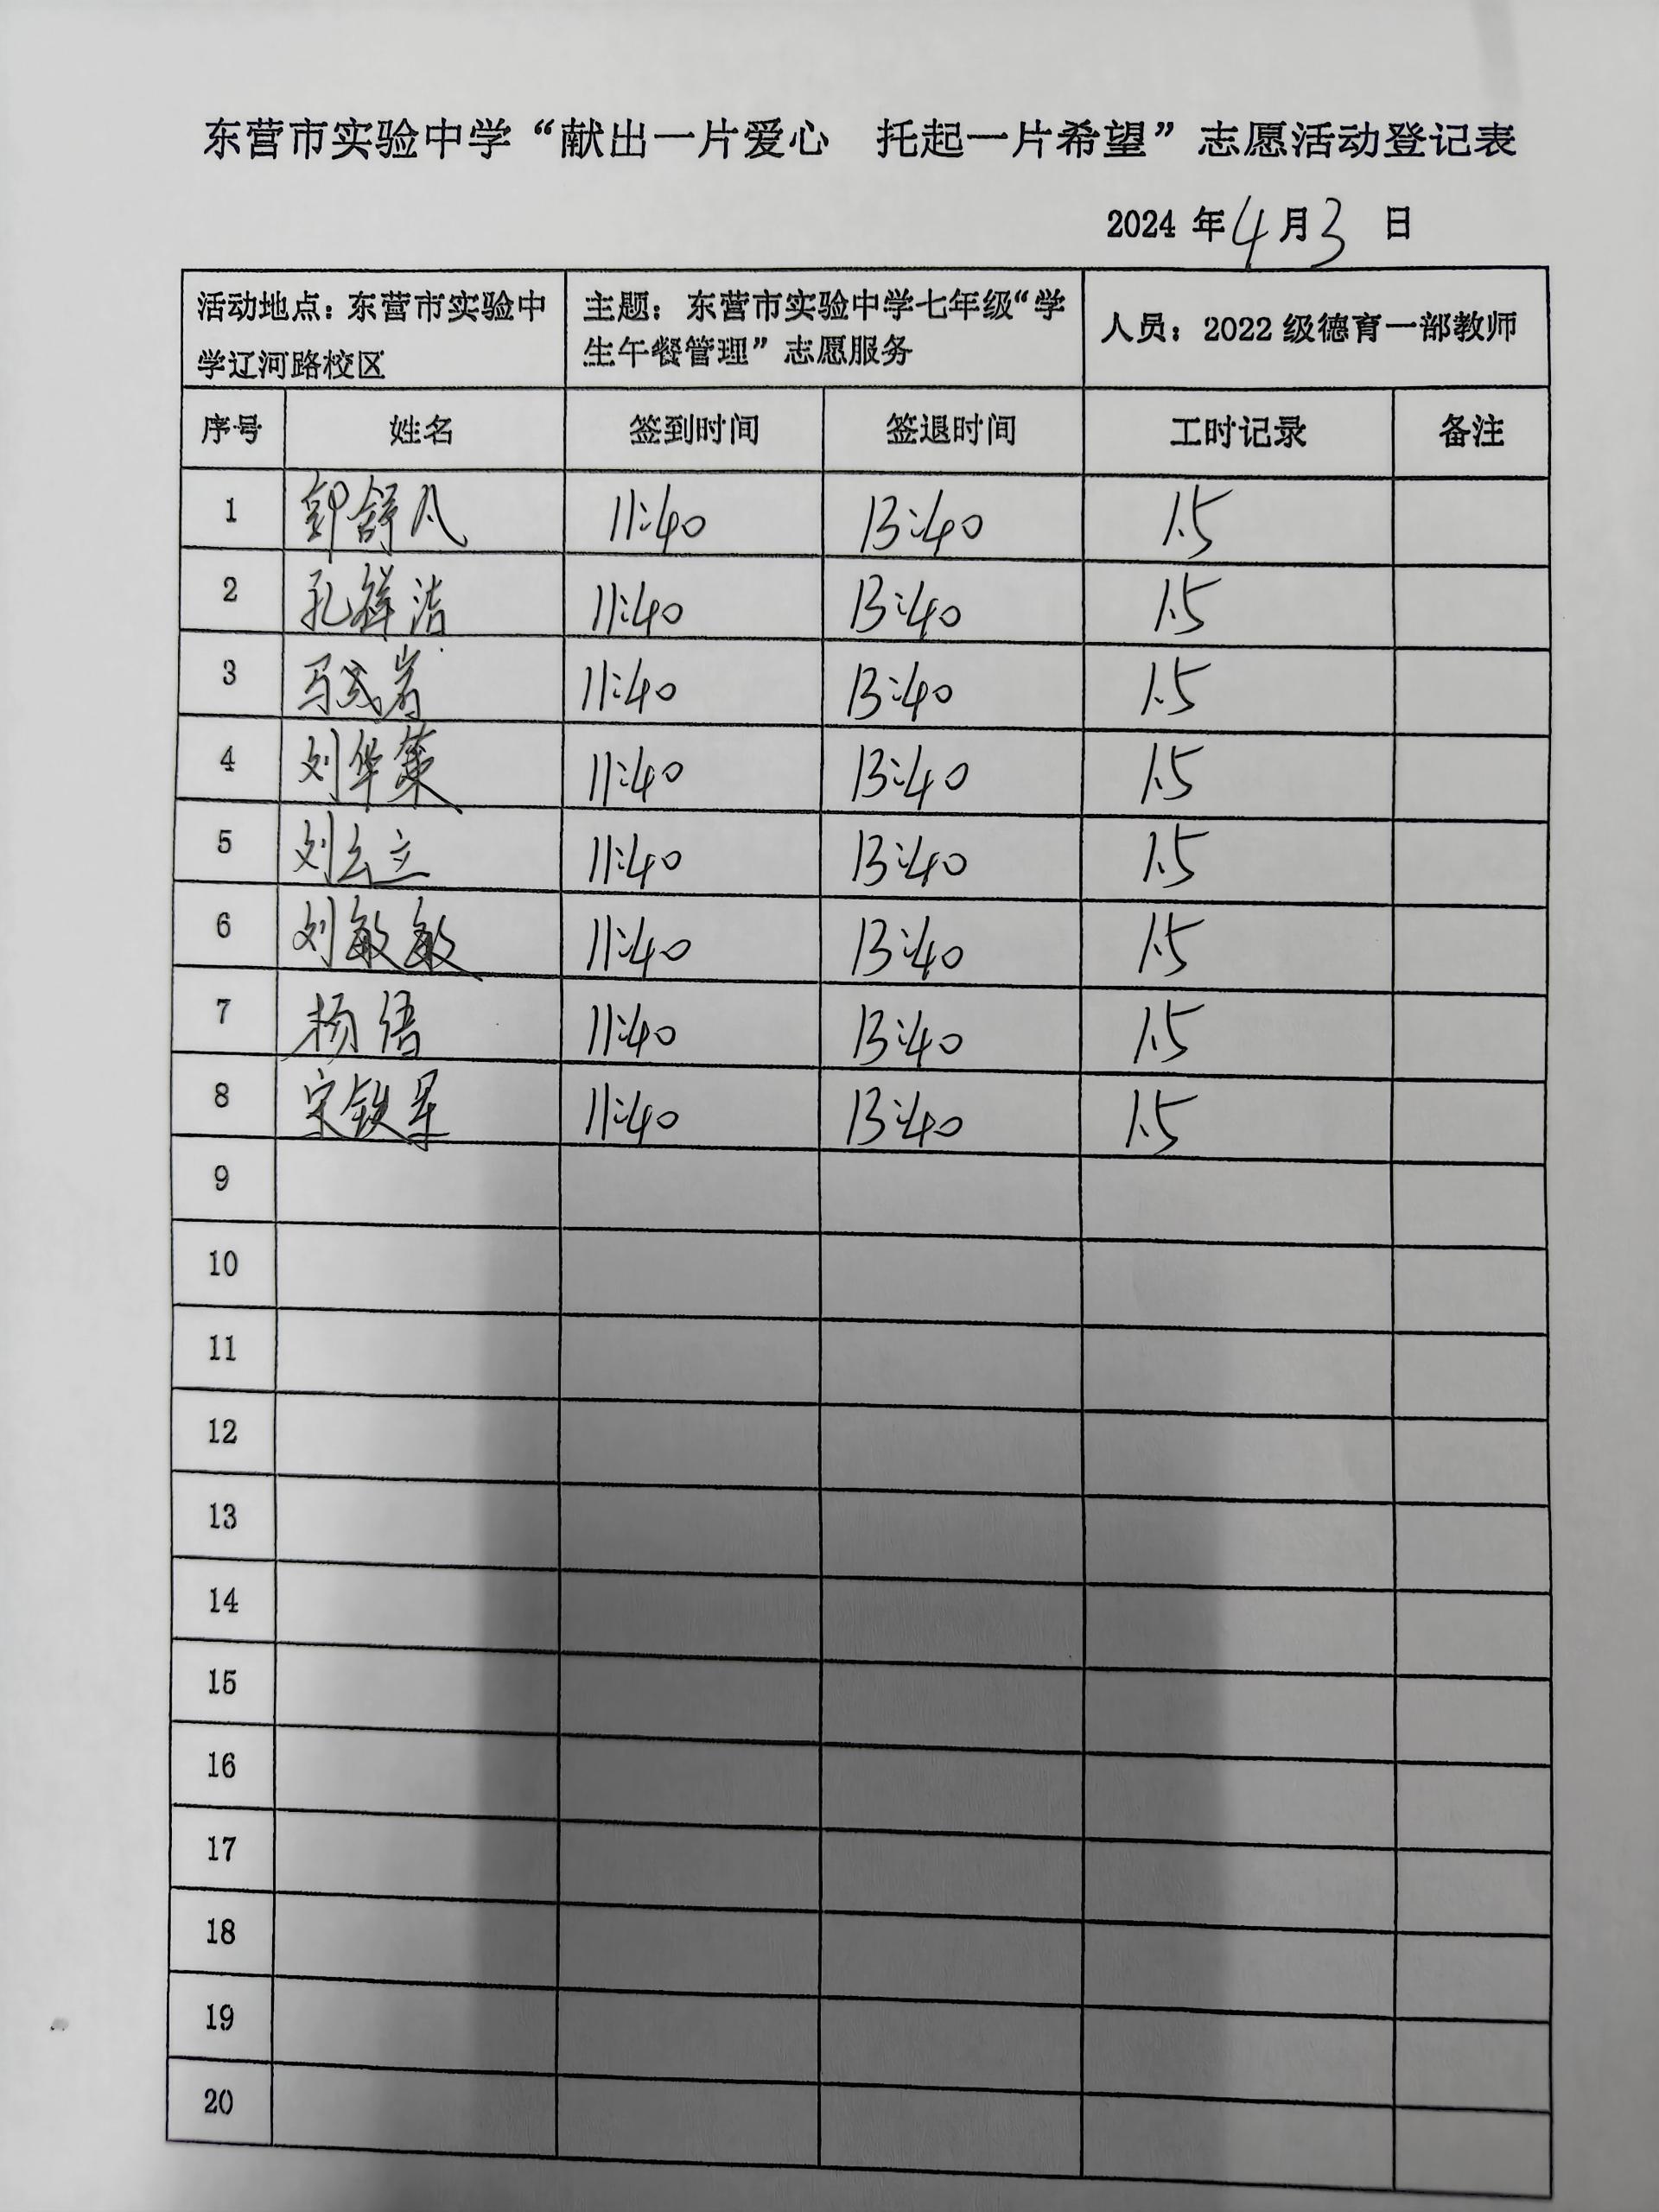 东营市实验中学“献出一片爱心 托起一片希望”志愿活动登记表
2024 年 4 月 3 日
活动地点：东营市实验中
学辽河路校区
主题： 东营市实验中学七年级“学
生午餐管理”志愿服务
人员：2022 级德育一部教师
序号 姓名 签到时间 签退时间 工时记录 备注
1 舒凡 11:40 13:40 1.5
2 孔祥洁 11:40 13:40 1.5
3 马 岩 11:40 13:40 1.5
4 刘华 11:40 13:40 1.5
5 刘云立 11:40 13:40 1.5
6 刘敏敏 11:40 13:40 1.5
7 杨倩 11:40 13:40 1.5
8 宋铁军 11:40 13:40 1.5
9
10
11
12
13
14
15
16
17
18
19
20